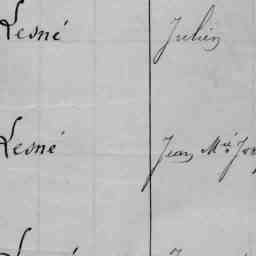 Lesné Julien
Lesné Jean Mie